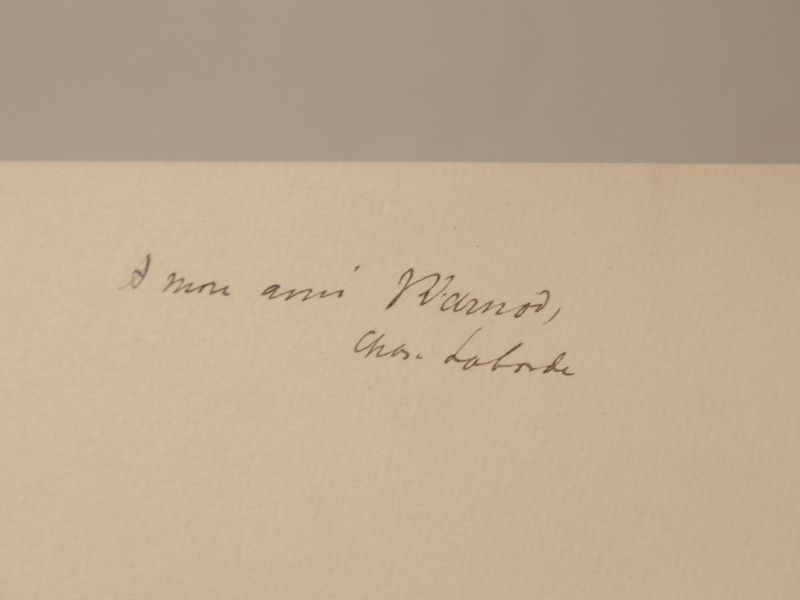 A mon ami Warnod,
Chas. Laborde